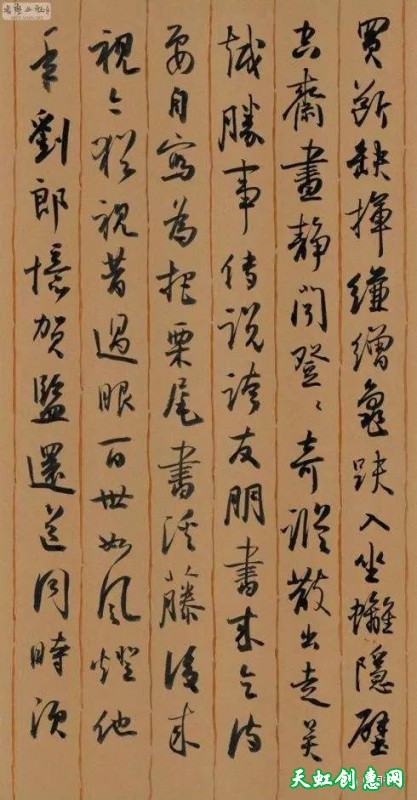 買斷缺揮縑繒龜趺入坐螭隱壁
空齋晝靜聞登〻奇蹤散出走吳
越勝事傳說誇友朋書來乞詩
要自寫為把栗尾書溪藤後來
視今猶視昔過眼百世如風燈他
年劉郎憶賀監還道同時須
天虹创惠网